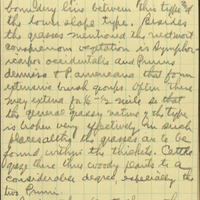 boundary line between this type &
the lower slope type. Besides
the grasses mentioned the most
conspicuous vegetation is Symphor-
icarpos occidentalis and Prunus
demissa & P. americana that form
extensive brush groups. Often these
may extend for ½ miles so that
the general grassy nature of the type
is broken very effectively. In such
places the grasses are to be
found within the thickets. Cattle
graze these woody plants to a
considerable degree especially the
two Pruni.